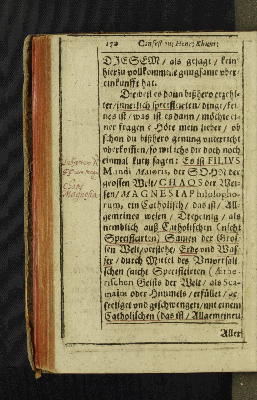 172 Confess: von Henrici Khunr:
DIESEM / als gesagt / kein
hierzu vollkommene gnugsame vber-
einkunfft hat.
Dieweil es dann bißhero erzehl-
ter / innerlich specificirten / dinge / kei-
nes ist / was ist es dann / möchte ei-
ner fragen? Höre mein lieber / ob
schon du bißhero genung vnterricht
vberkoffen / so wil ichs dir doch noch
einmal kurtz sagen: Es ist FILIVS
Mundi Maioris, der SOHN der
grossen Welt / CHAOS der Wei-
sen / MAGNESIA Philosopho-
rum, ein Catholisch / das ist / All-
gemeines wesen / Dreyeinig / als
nemblich auß Catholischen (nicht
Specificirten) Samen der Gros-
sen Welt / entstehe / Erde vnd Was-
ser / durch Mittel des Vniversali-
schen (nicht Specificirten) Æthe-
rischen Geists der Welt / als Sca-
maim oder Himmels / erfüllet / ge-
vnd geschwengert / mit einem
Catholischen (das ist / Allgemeinen
Aller
Chaos
Magnesia